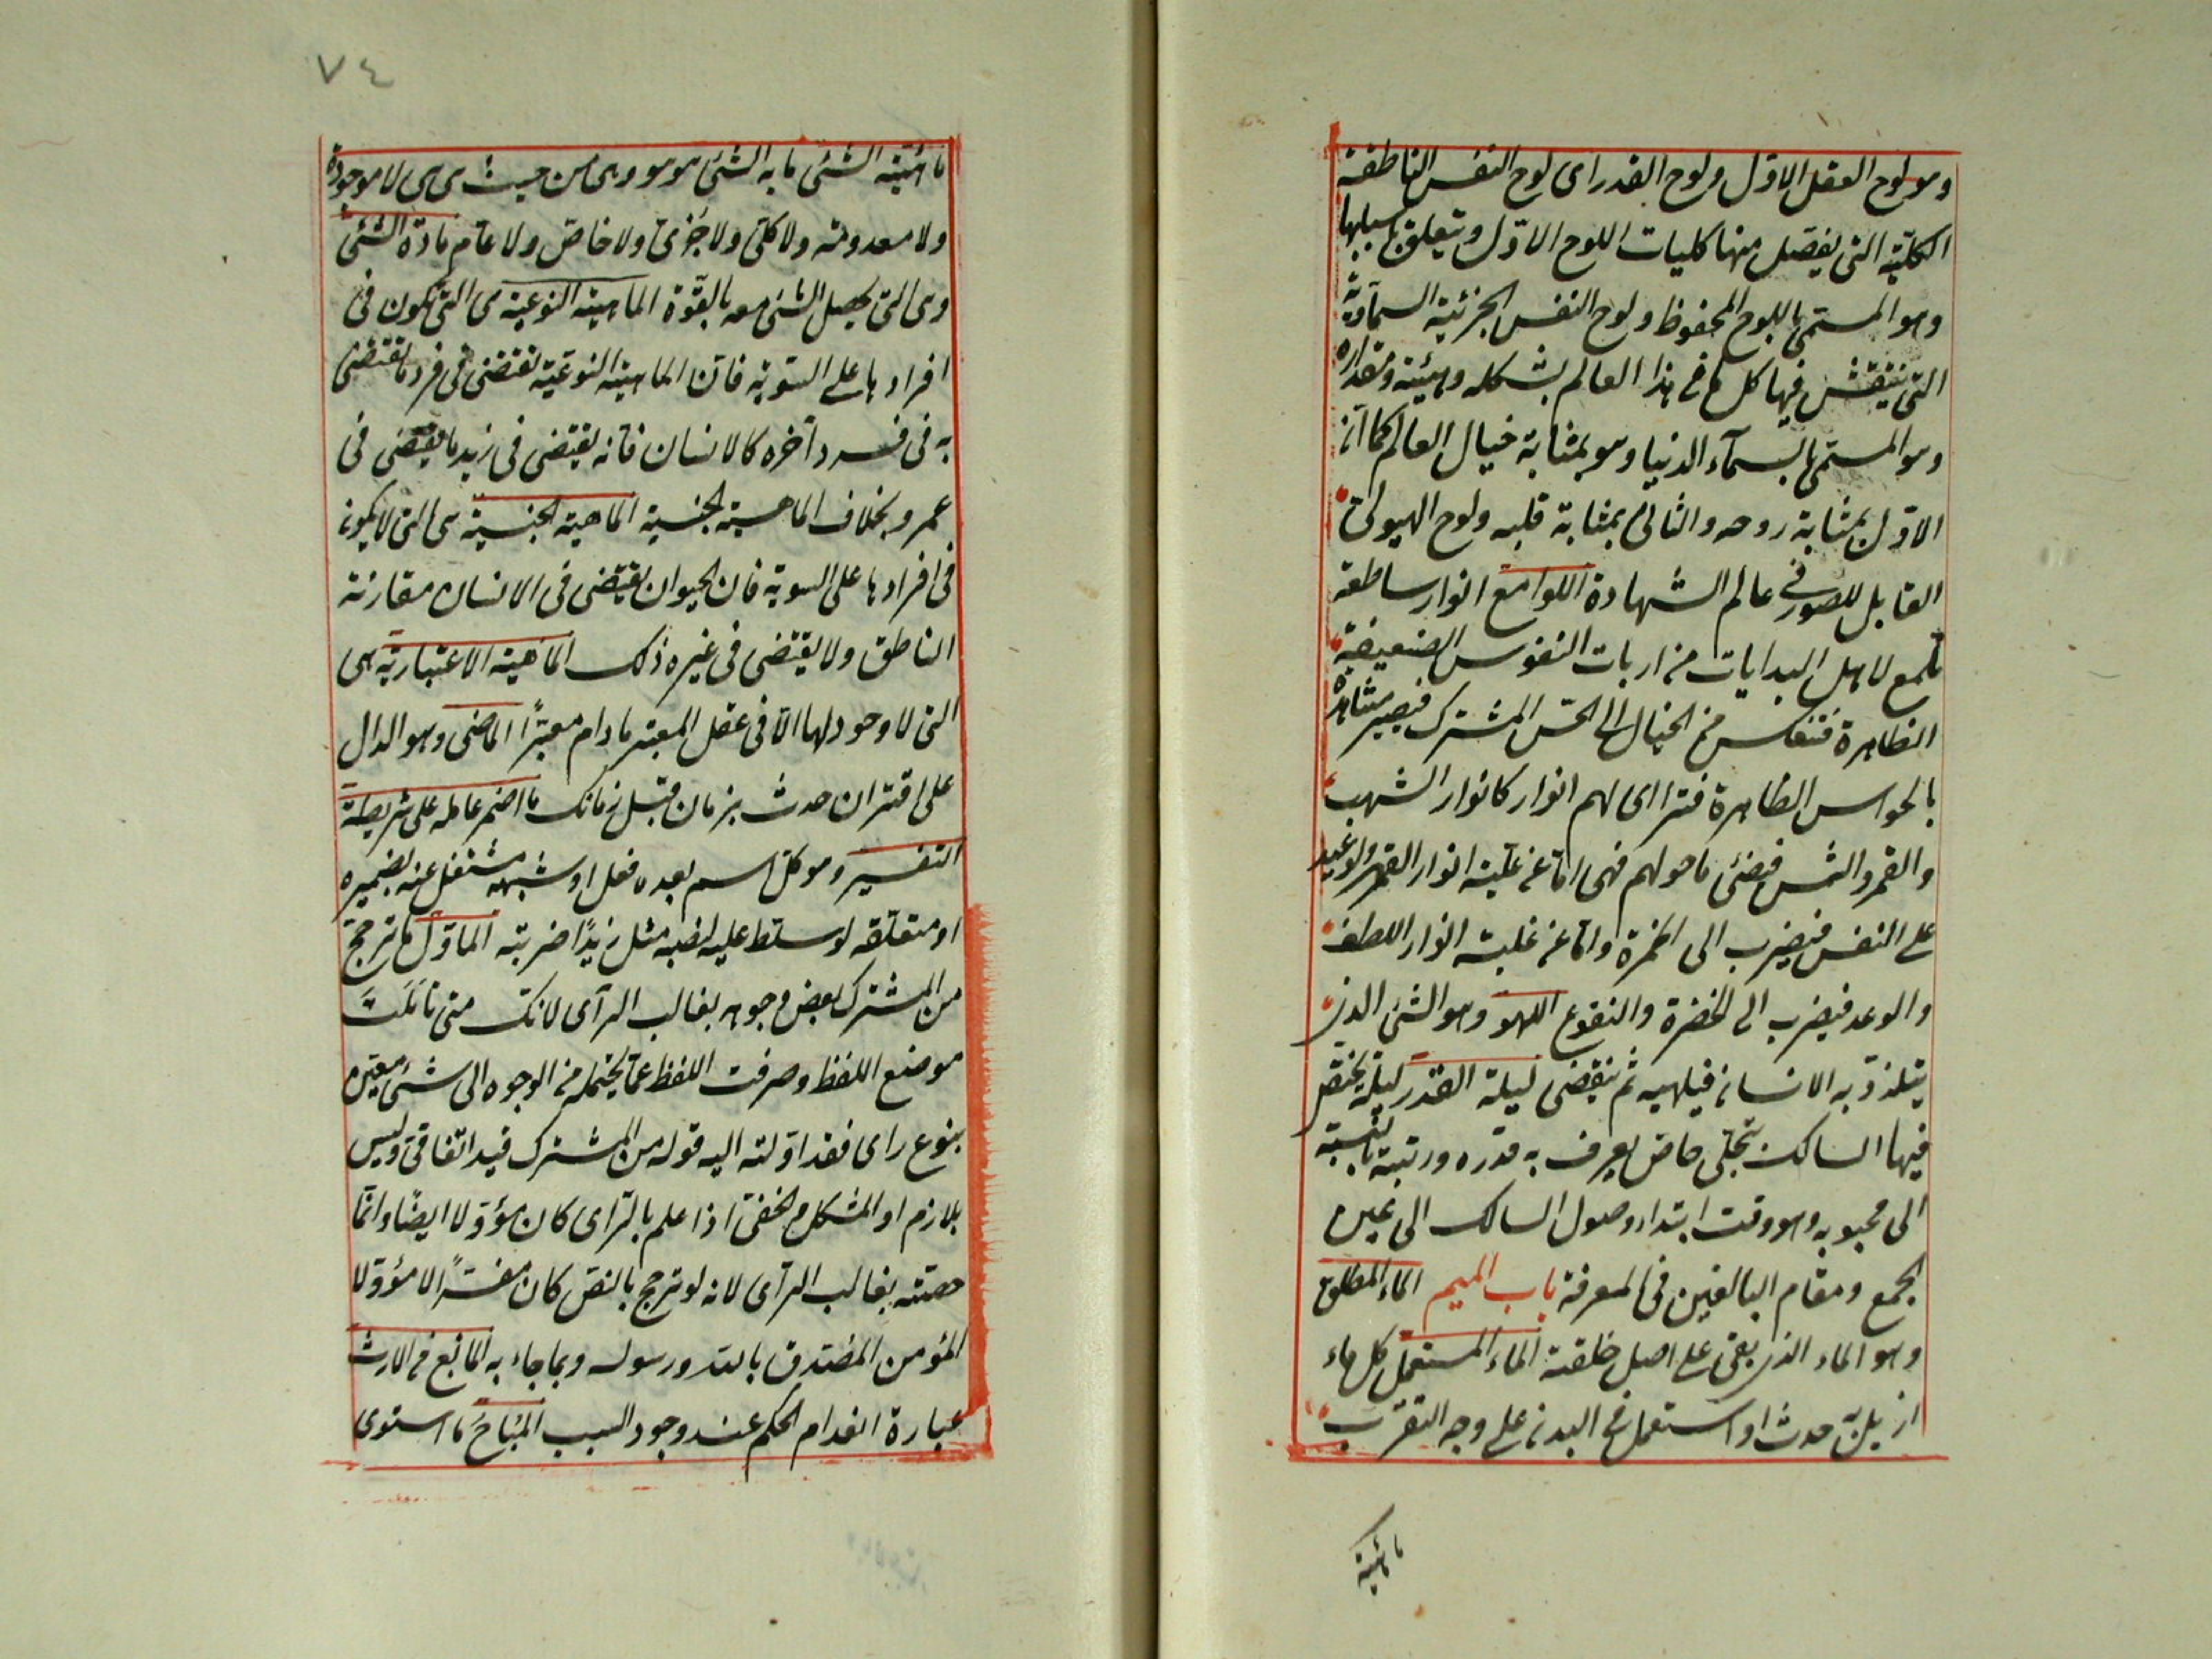 وهو لوح العقل الاول ولوح القدر اى لوح النفس الناطقة
الكلية التى يفصل منها كليات اللوح الاول ويتعلق باسبابها
وهو المسمى باللوح المحفوظ ولوح النفس الجزئية السماوية
التى ينتقش فيها كل ما فى هذا العالم بشكله وهيئته ومقداره
وهو المسمى بالسمآء الدنيا وهو بمثابة خيال العالم كما ان
الاول بمثابة روحه والثانى بمثابة قلبه ولوح الهيولى
القابل للصور فى عالم الشهادة اللوامع انوار ساطعة
تلمع لاهل البدايات من ارباب النفوس الضعيفة
الظاهرة فتنعكس من الخيال الى الحس المشترك فيصير مشاهدة
بالحواس الظاهرة فتراءى لهم انوار كانوار الشهب
والقمر والشمس فيضئ ما حولهم فهى اما عن غلبة انوار القهر والوعيد
على النفس فيضرب الى الحمرة واما عن غلبة انوار اللطف
والوعد فيضرب الى الخضرة والنقوع اللهو وهو الشئ الذى
يتلذذ به الانسان فيلهيه ثم ينقضى ليلة القدر ليلة يختص
فيها السالك بتجلى خاص يعرف به قدره ورتبته بالنسبة
الى محبوبه وهو وقت ابتداء وصول السالك الى عين
الجمع ومقام البالغين فى المعرفة باب الميم الماء المطلق
وهو الماء الذى بقى على اصل خلقته الماء المستعمل كل ماء
ازيل به حدث او استعمل فى البدن على وجه التقرب
ماهية
٧٤
ماهية الشئ ما به الشئ هو هو وهى من حيث هى هى لا موجودة
ولا معدومة ولا كلى ولا جزئى ولا خاص ولا عام مادة الشئ
وهى التى يحصل الشئ معه بالقوة الماهية النوعية هى التى تكون فى
افرادها على السوية فان الماهية النوعية تقتضى فى فرد ما تقتضى
به فى فرد آخره كالانسان فانه يقتضى فى زيد ما يقتضى فى
عمرو بخلاف الماهية الجنسية الماهية الجنسية هى التى لا يكون
فى افرادها على السوية فان الحيوان يقتضى فى الانسان مقارنة
الناطق ولا يقتضى فى غيره ذلك الماهية الاعتبارية هى
التى لا وجود لها الا فى عقل المعتبر ما دام معتبرا الماضى وهو الدال
على اقتران حدث بزمان قبل زمانك ما اضمر عامله على شريطة
التفسير وهو كل اسم بعده فعل او شبهه مشتغل عنه بضميره
او متعلقه لو سلط عليه لنصبه مثل زيدا ضربته الماول ما ترجح
من المشترك بعض وجوهه بغالب الرآى لانك متى تاملت
موضع اللفظ وصرفت اللفظ عما يحتمله من الوجوه الى شئ معين
بنوع راى فقد اولته اليه قوله من المشترك قيد اتفاقى وليس
بلازم او المشكل والخفى اذا علم بالراى كان مؤولا ايضا وانما
خصته بغالب الرآى لانه لو ترجح بالنص كان مفسرا لا مؤولا
المؤمن المصدق بالله ورسوله وبما جاء به المانع فى الارث
عبارة انعدام الحكم عند وجود السبب المباح ما استوى